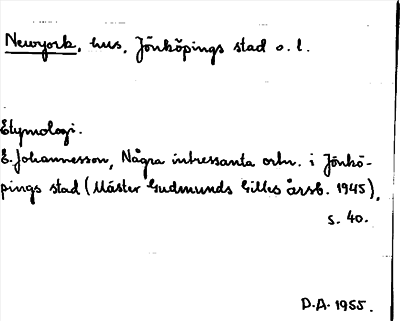 Newyork, hus, Jönköpings stad o. l.
Etymologi.
E. Johannesson, Några intressanta ortn. i Jönkö-
pings stad (Mäster Gudmunds Gilles årsb. 1945),
s. 40.
D.A. 1955.